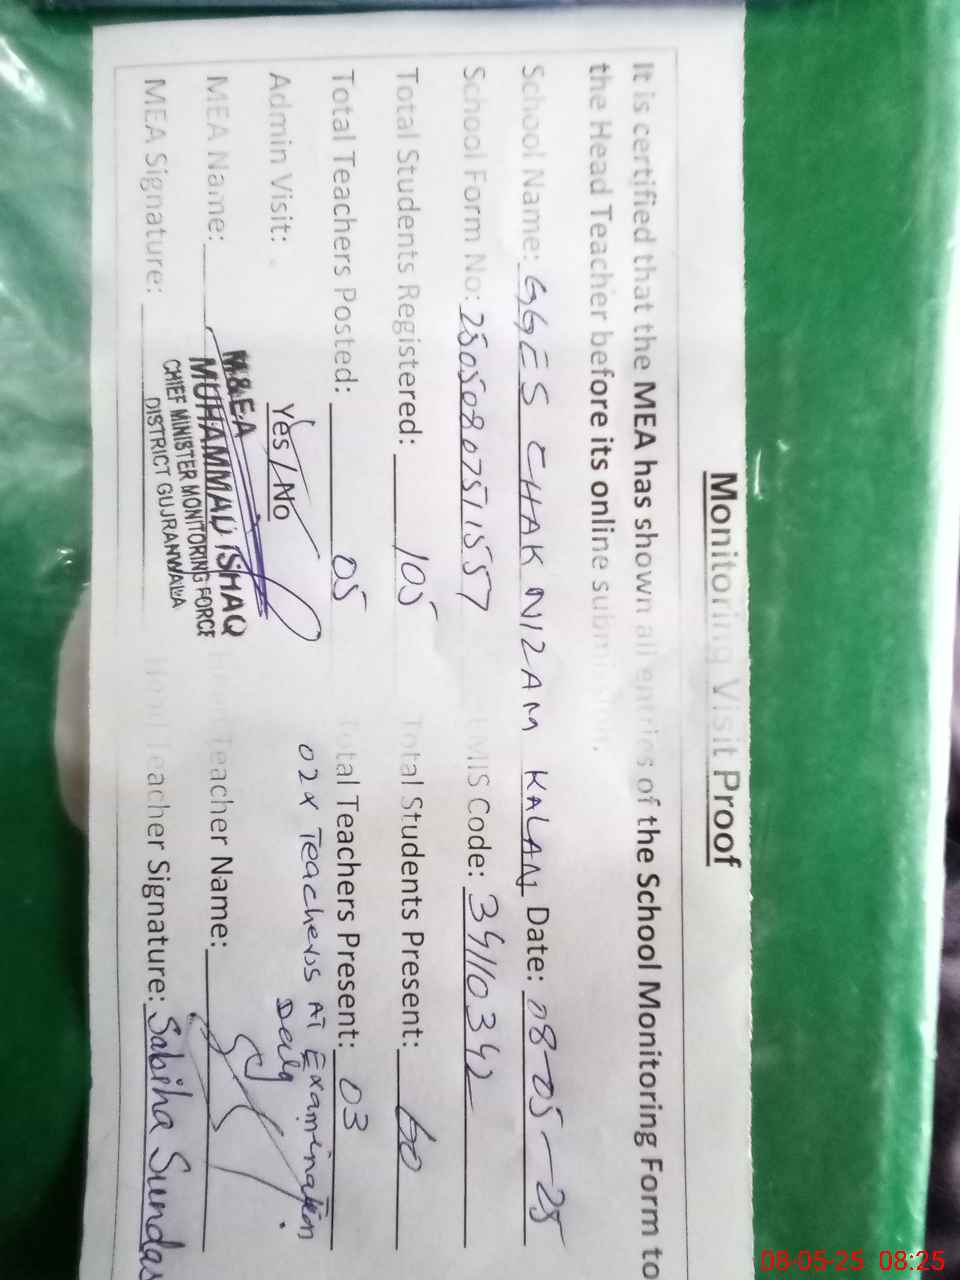 Monitoring Visit Proof
It is certified that the MEA has shown all entries of the School Monitoring Form to
the Head Teacher before its online submission.
School Name: GGES CHAK NIZAM KALAN Date: 08-05-25
School Form No: 25050807511557 EMIS Code: 34110342
Total Students Registered: 105 Total Students Present: 60
Total Teachers Posted: 05 Total Teachers Present: 03
02 x Teachers AT Examination
Admin Visit: Yes / No
MEA Name: Head Teacher Name:
MEA Signature: Head Teacher Signature: Sabiha Sundas
M&E.A
MUHAMMAD ISHAQ
CHIEF MINISTER MONITORING FORCE
DISTRICT GUJRANWALA
08-05-25 08:25